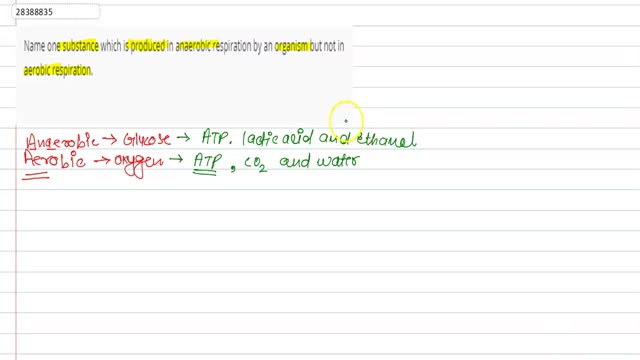 28388835
Name one substance which is produced in anaerobic respiration by an organism but not in
aerobic respiration.
Anaerobic → Glycose → ATP. ladic acid and ethanel
Aerobic → oxygen → ATP, CO2 and water